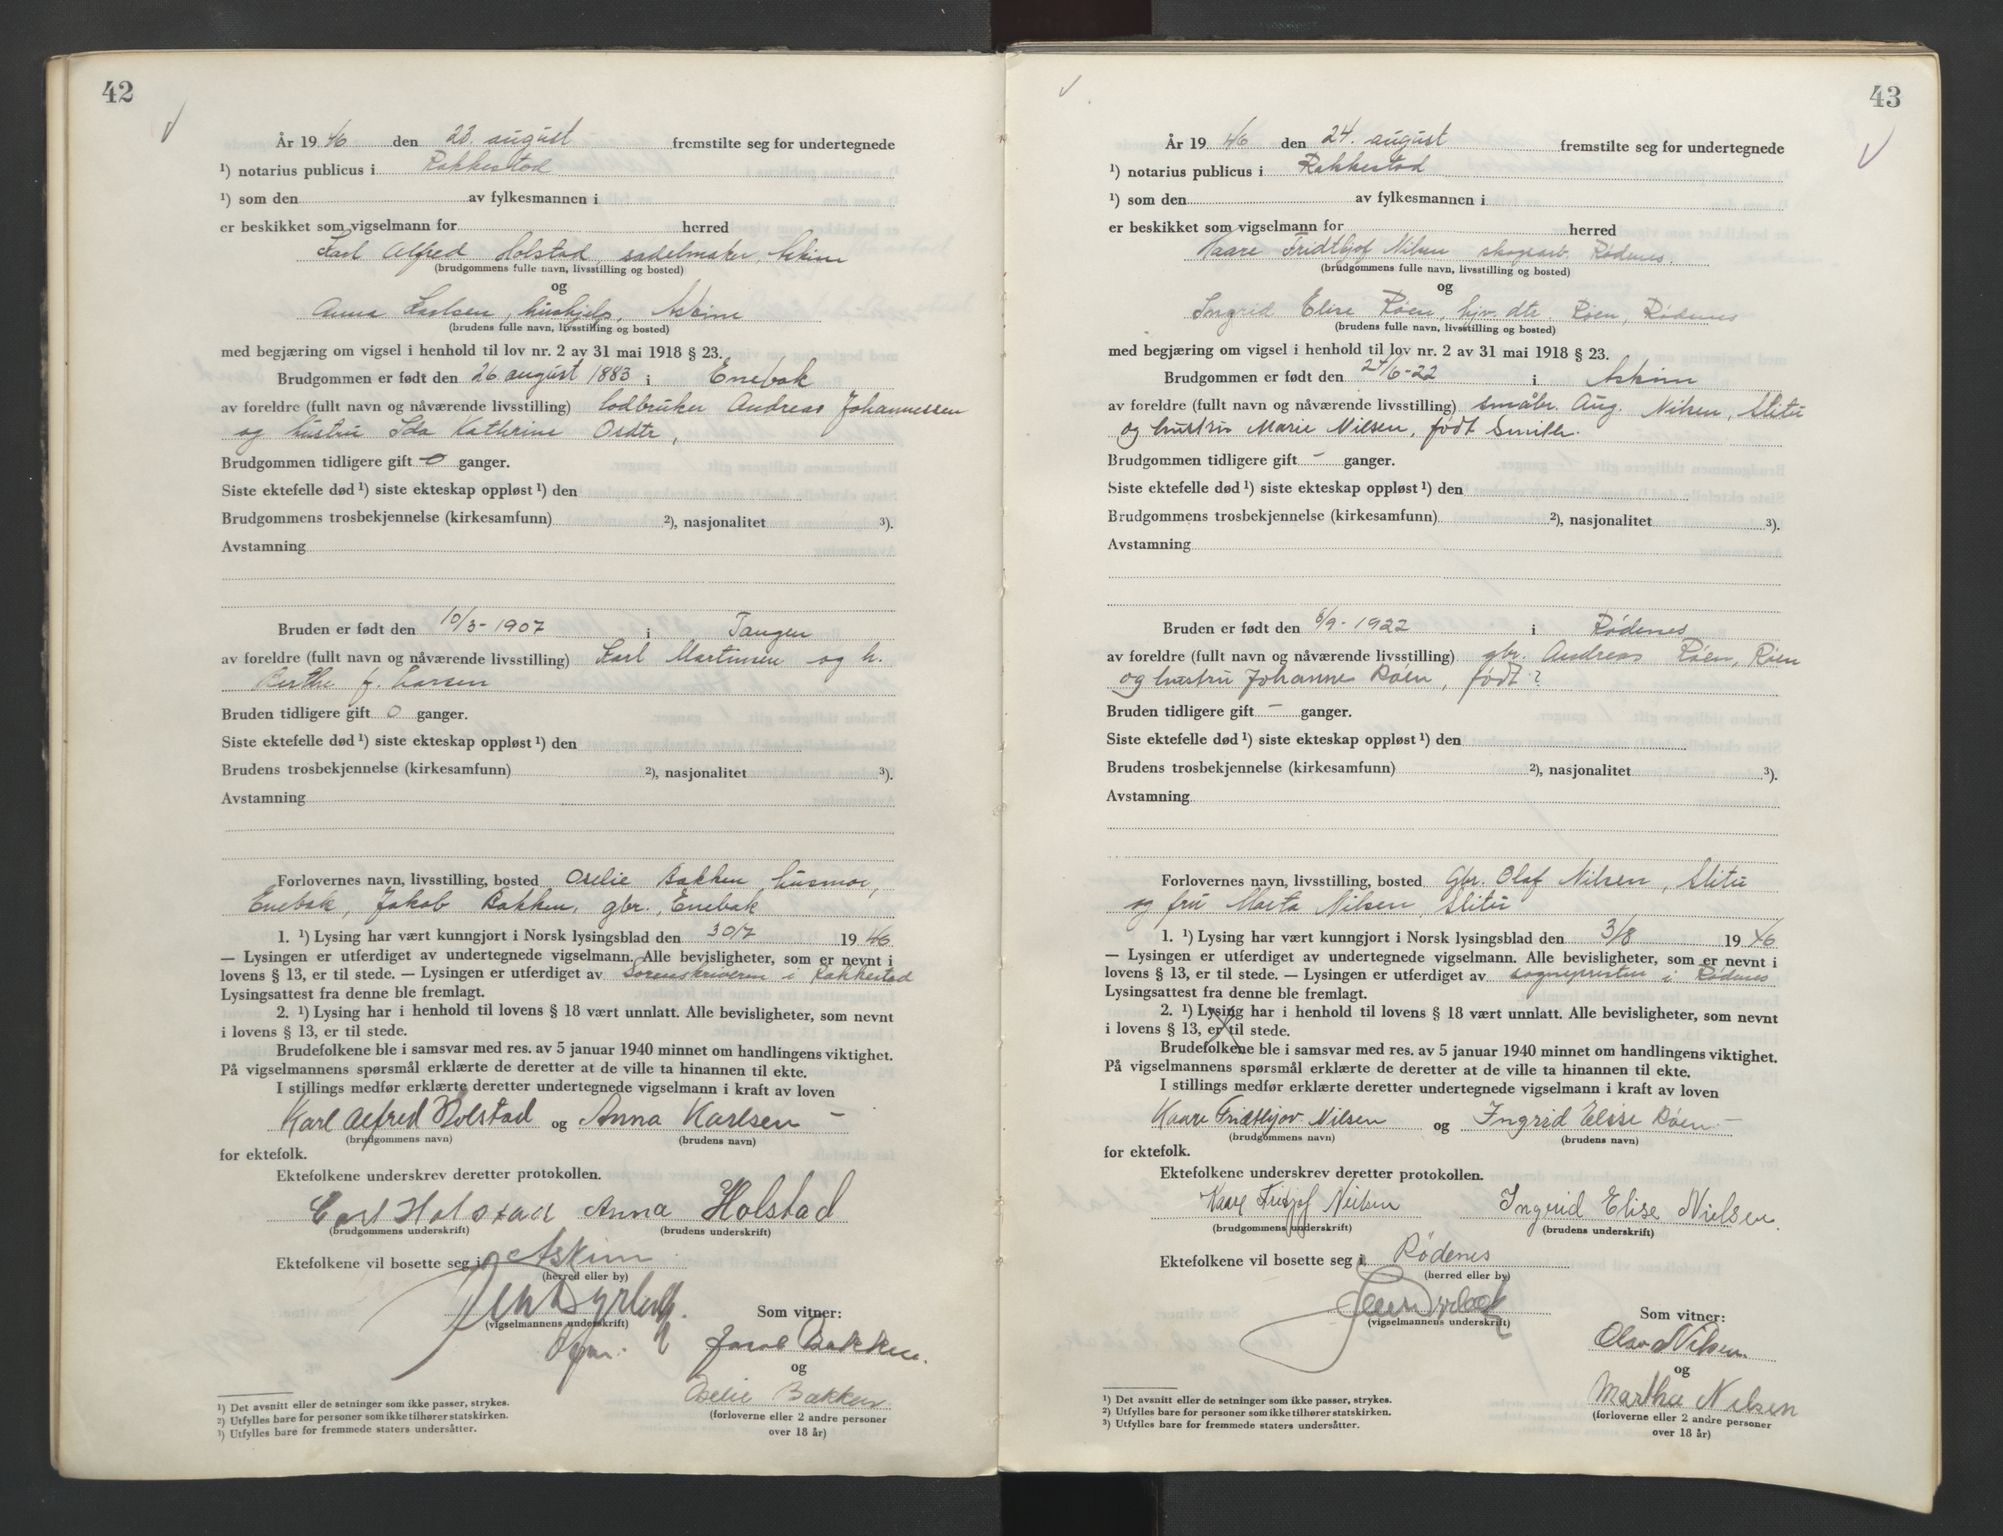 42
År 19 46 den 23. august fremstilte seg for undertegnede
¹) notarius publicus i Rakkestad
¹) som den av fylkesmannen i
er beskikket som vigselmann for herred
Karl Alfred Holstad, sadelmaker, Askim
(brudgommens fulle navn, livsstilling og bosted)
og
Anna Karlsen, hushjelp, Askim
(brudens fulle navn, livsstilling og bosted)
med begjæring om vigsel i henhold til lov nr. 2 av 31 mai 1918 § 23.
Brudgommen er født den 26 august 1883 i Enebak
av foreldre (fullt navn og nåværende livsstilling) lodbruker Andreas Johannessen
og hustru Ida Kathrine Orsdtr,
Brudgommen tidligere gift 0 ganger.
Siste ektefelle død ¹) siste ekteskap oppløst ¹) den
Brudgommens trosbekjennelse (kirkesamfunn) ²), nasjonalitet ³).
Avstamning
Bruden er født den 10/3-1907 i Tangen
av foreldre (fullt navn og nåværende livsstilling) Karl Martinsen og h.
Berthe f. Larsen
Bruden tidligere gift 0 ganger.
Siste ektefelle død ¹) siste ekteskap oppløst ¹) den
Brudens trosbekjennelse (kirkesamfunn) ²), nasjonalitet ³).
Avstamning
Forlovernes navn, livsstilling, bosted Oselie Bakken husmor,
Enebak, Jakob Bakken, gbr., Enebak
1. ¹) Lysing har vært kunngjort i Norsk lysingsblad den 30/7 19 46
— Lysingen er utferdiget av undertegnede vigselmann. Alle bevisligheter, som er nevnt i
lovens § 13, er til stede. — Lysingen er utferdiget av Sorenskriveren i Rakkestad
Lysingsattest fra denne ble fremlagt.
2. ¹) Lysing har i henhold til lovens § 18 vært unnlatt. Alle bevisligheter, som nevnt
i lovens § 13, er til stede.
Brudefolkene ble i samsvar med res. av 5 januar 1940 minnet om handlingens viktighet.
På vigselmannens spørsmål erklærte de deretter at de ville ta hinannen til ekte.
I stillings medfør erklærte deretter undertegnede vigselmann i kraft av loven
Karl Alfred Holstad og Anna Karlsen —
(brudgommens navn) (brudens navn)
for ektefolk.
Ektefolkene underskrev deretter protokollen.
Carl Holstad Anna Holstad
(brudgommens underskrift) (brudens underskrift)
Ektefolkene vil bosette seg i Askim
(herred eller by)
(vigselmannens underskrift)
Som vitner:
Jacob Bakken.
og
Oselie Bakken
(forloverne eller 2 andre personer
over 18 år)
¹) Det avsnitt eller de setninger som ikke passer, strykes.
²) Utfylles bare for personer som ikke tilhører statskirken.
³) Utfylles bare for fremmede staters undersåtter.
43
År 19 46 den 24. august fremstilte seg for undertegnede
¹) notarius publicus i Rakkestad
¹) som den av fylkesmannen i
er beskikket som vigselmann for herred
Kaare Fridthjof Nilsen skogsarb. Rødenes.
(brudgommens fulle navn, livsstilling og bosted)
og
Ingrid Elise Røen, hjv. dtr. Røen, Rødenes
(brudens fulle navn, livsstilling og bosted)
med begjæring om vigsel i henhold til lov nr. 2 av 31 mai 1918 § 23.
Brudgommen er født den 24/6-22 i Askim
av foreldre (fullt navn og nåværende livsstilling) småbr. Aug. Nilsen, Slitu
og hustru Marie Nilsen, født Smith.
Brudgommen tidligere gift - ganger.
Siste ektefelle død ¹) siste ekteskap oppløst ¹) den
Brudgommens trosbekjennelse (kirkesamfunn) ²), nasjonalitet ³).
Avstamning
Bruden er født den 6/9-1922 i Rødenes
av foreldre (fullt navn og nåværende livsstilling) gbr. Andreas Røen, Røen
og hustru Johanne Røen, født ?
Bruden tidligere gift - ganger.
Siste ektefelle død ¹) siste ekteskap oppløst ¹) den
Brudens trosbekjennelse (kirkesamfunn) ²), nasjonalitet ³).
Avstamning
Forlovernes navn, livsstilling, bosted Gbr. Olaf Nilsen, Slitu
og fru Marta Nilsen, Slitu
1. ¹) Lysing har vært kunngjort i Norsk lysingsblad den 3/8 19 46
— Lysingen er utferdiget av undertegnede vigselmann. Alle bevisligheter, som er nevnt i
lovens § 13, er til stede. — Lysingen er utferdiget av sognepresten i Rødenes
Lysingsattest fra denne ble fremlagt.
2. ¹) Lysing har i henhold til lovens § 18 vært unnlatt. Alle bevisligheter, som nevnt
i lovens § 13, er til stede.
Brudefolkene ble i samsvar med res. av 5 januar 1940 minnet om handlingens viktighet.
På vigselmannens spørsmål erklærte de deretter at de ville ta hinannen til ekte.
I stillings medfør erklærte deretter undertegnede vigselmann i kraft av loven
Kaare Fridthjov Nilsen og Ingrid Elise Røen —
(brudgommens navn) (brudens navn)
for ektefolk.
Ektefolkene underskrev deretter protokollen.
Kaare Fritjof Nilsen Ingrid Elise Nielsen.
(brudgommens underskrift) (brudens underskrift)
Ektefolkene vil bosette seg i Rødenes
(herred eller by)
(vigselmannens underskrift)
Som vitner:
Olav Nilsen.
og
Martha Nilsen
(forloverne eller 2 andre personer
over 18 år)
¹) Det avsnitt eller de setninger som ikke passer, strykes.
²) Utfylles bare for personer som ikke tilhører statskirken.
³) Utfylles bare for fremmede staters undersåtter.